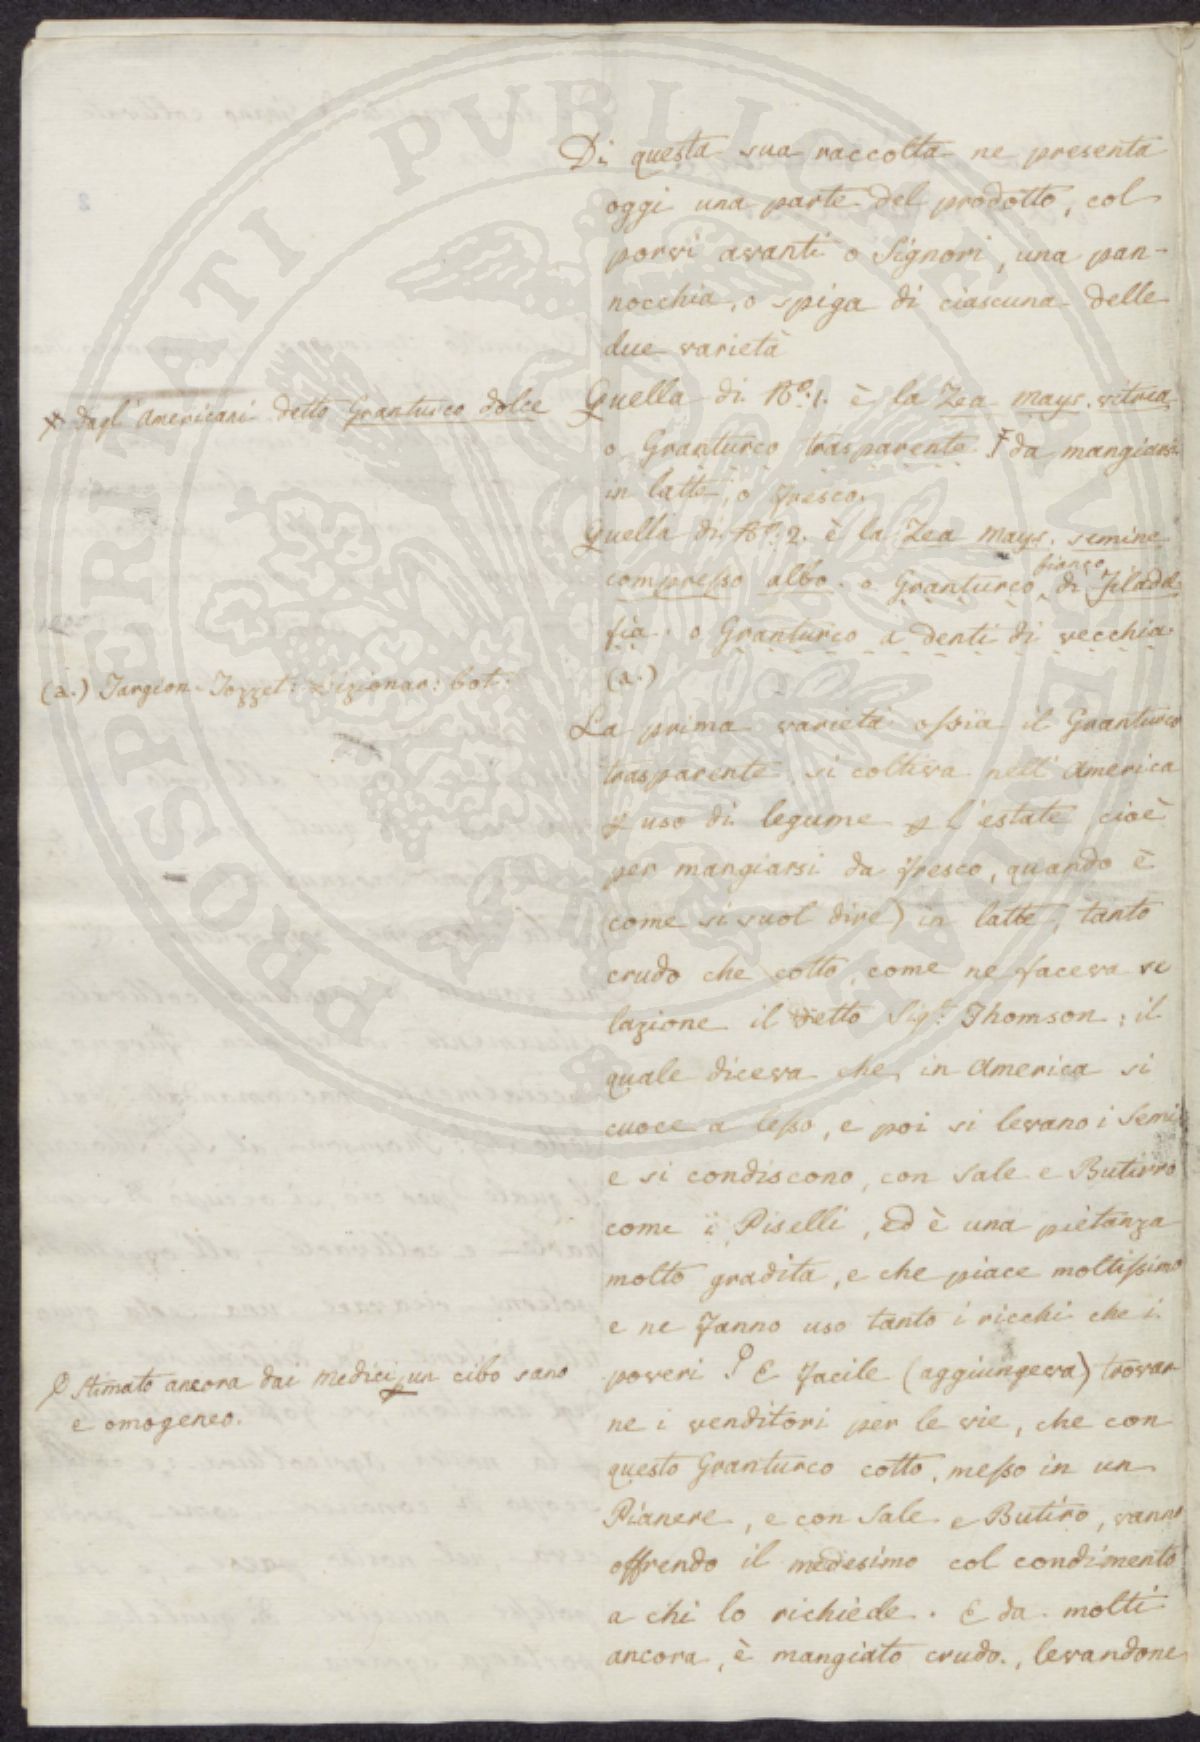 Di questa sua raccolta ne presenta
oggi una parte del prodotto, col
porvi avanti o Signori, una pan-
nocchia, o spiga di ciascuna delle
due varietà
Quella di N.º 1. è la Zea mays. vitrea
o Granturco trasparente da mangiarsi
in latte, o fresco.
Quella di N.º 2. è la Zea mays. semine
compresso albo. o Granturco bianco di Filadel
fia. o Granturco a denti di vecchia
(a.)
La prima varietà ossia il Granturco
trasparente, si coltiva nell' America
p uso di legume p l'estate, cioè
per mangiarsi da fresco, quando è
(come si suol dire) in latte, tanto
crudo che cotto, come ne faceva re
lazione il detto Sigr. Thomson; il
quale diceva che in America si
cuoce a lesso, e poi si levano i Semi
e si condiscono, con Sale e Butirro
come i Piselli, ed è una pietanza
molto gradita, e che piace moltissimo
e ne fanno uso tanto i ricchi che i
poveri E facile (aggiungeva) trovar
ne i venditori per le vie, che con
questo Granturco cotto, messo in un
Pianere, e con Sale e Butiro, vanno
offrendo il medesimo col condimento
a chi lo richiede. E da molti
ancora, è mangiato crudo., levandone
dagl' Americani detto Granturco dolce
(a.) Targion. Tozzet: Dizionar: bot:
Stimato ancora dai Medici p un cibo sano
e omogeneo.
PROSPERITATI PUBLICAE AUGENDAE